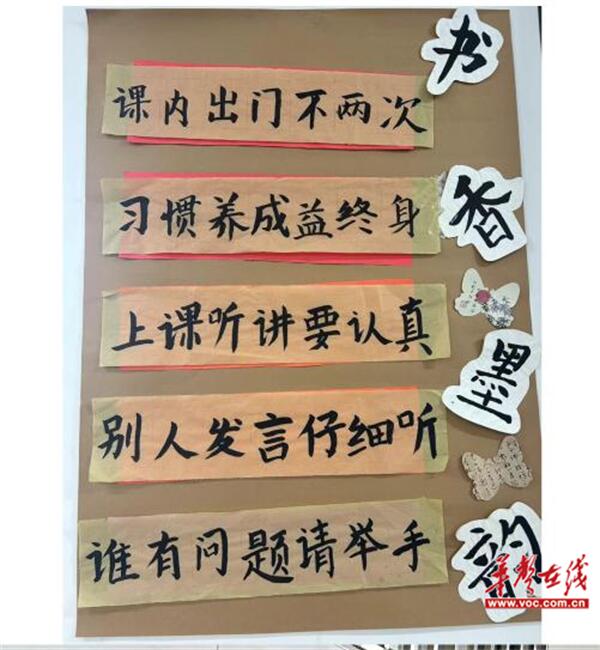 课内出门不两次
习惯养成益终身
上课听讲要认真
别人发言仔细听
谁有问题请举手
书香墨韵
华声在线
www.voc.com.cn